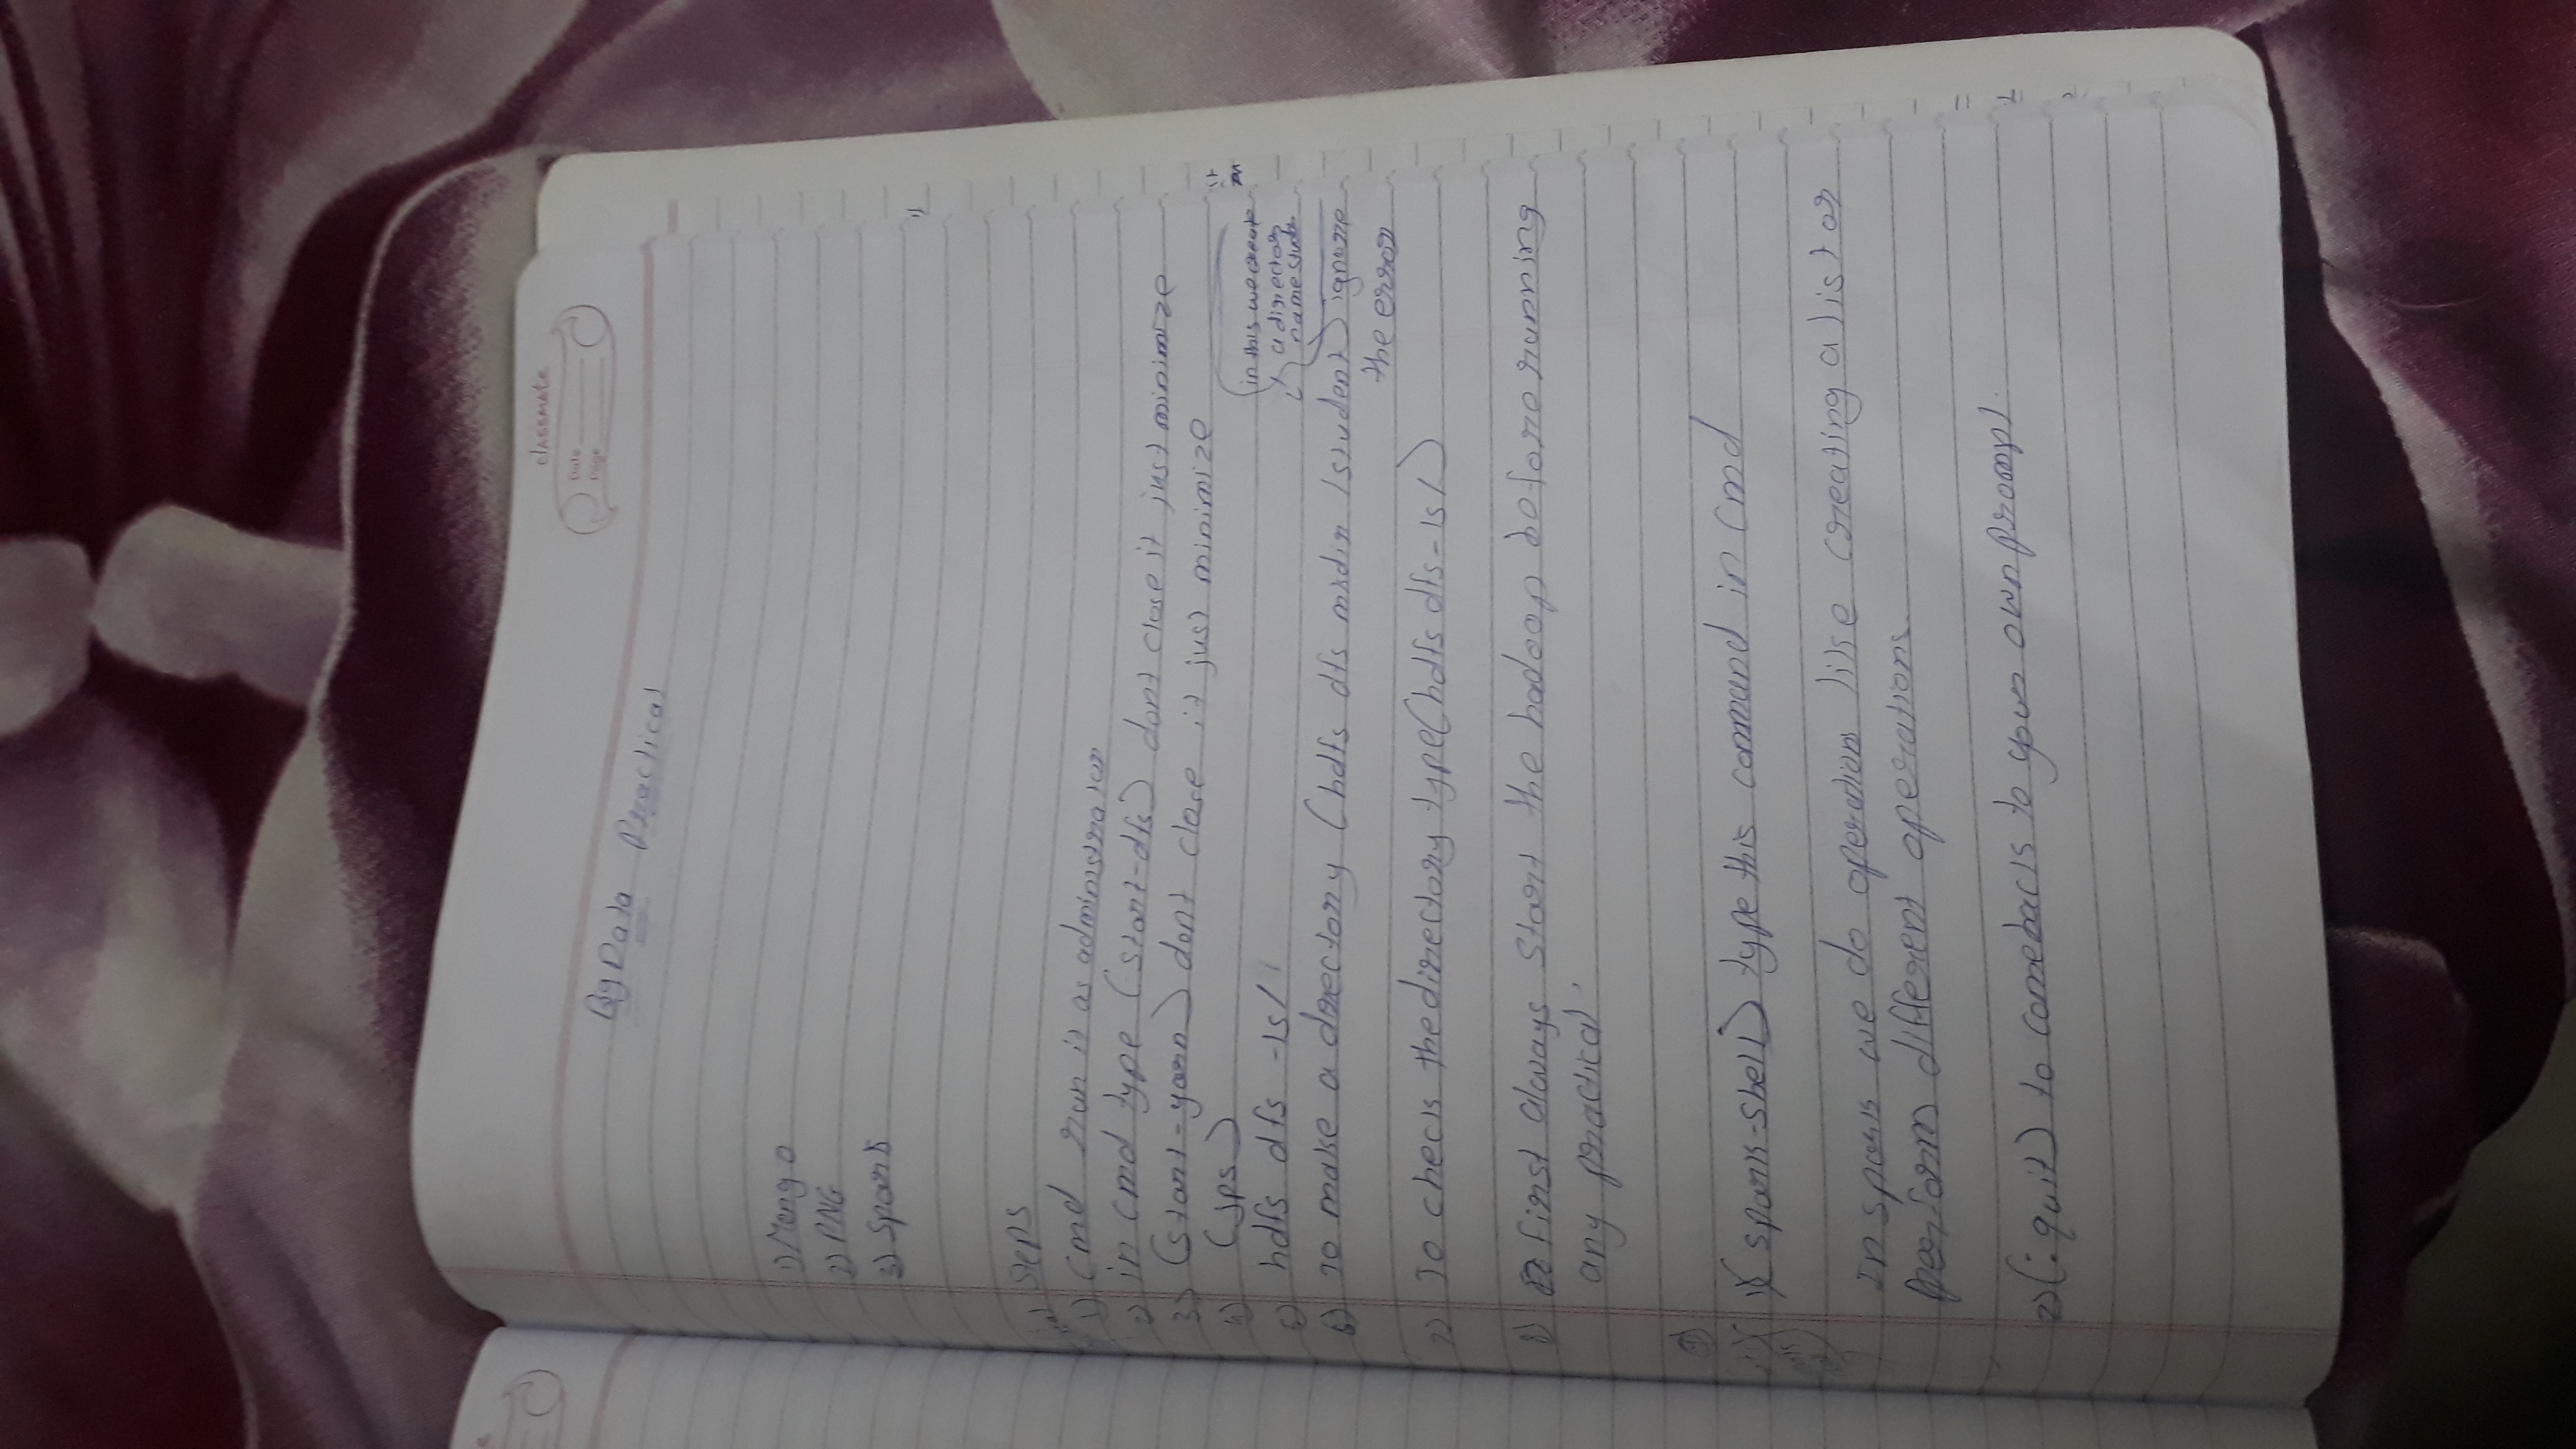 classmate
Date
Page
Big Data Practical
1) Mongo
2) PNG
3) Spark
Steps
1) Cmd run it as administrator
2) in cmd type (start-dfs) dont close it just minimize
3) (start-yarn) dont close it just minimize
4) (jps)
5) hdfs dfs -ls /
in this we create
a directory
name
6) To make a directory (hdfs dfs mkdir /student) ignore
the error
7) To check the directory type (hdfs dfs -ls /)
8) first always start the hadoop before running
any practical.
9)
1) (spark-shell) type this command in cmd
In spark we do operations like creating a list or
perform different operations.
2) (:quit) to comeback to your own prompt.